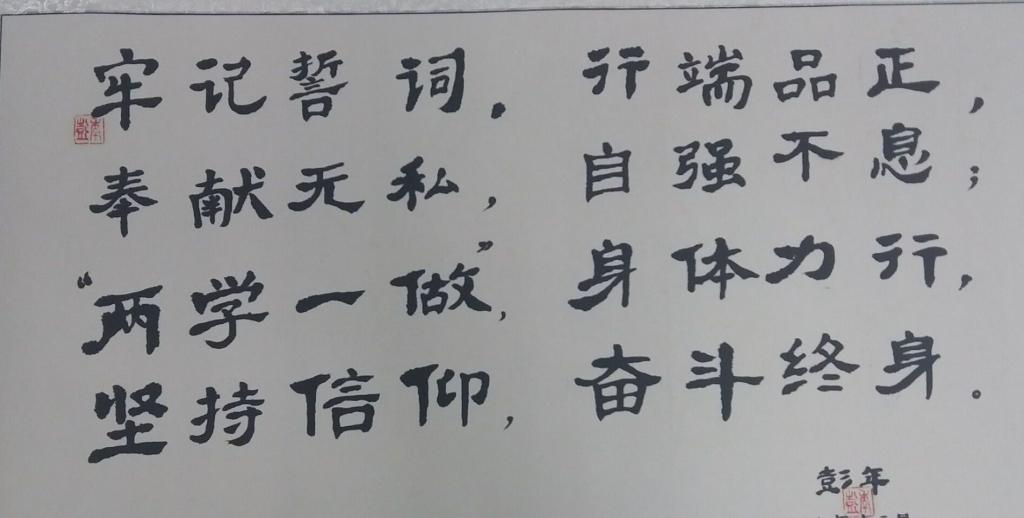 牢记誓词。行端品正,
奉献无私,自强不息;
“两学一做”,身体力行,
坚持信仰,奋斗终身。
彭年